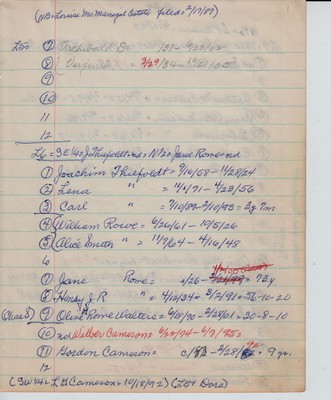 (NB: Louise McManigal Estate filed = 2/17/89)
L5 = ⑦ Archibald Do /21 - 4/20/62
⑧ Virginia = 3/29/34 - 10/21/35
9
⑩
⑪
12
L6 = SE 1/4 = J Thiefoldt = N 1/2 = Jane Rowe =
① Joachim Thiefoldt = 9/16/58 - 11/28/24
② Lena " = /71 - 4/23/56
③ Carl " = 7/10/89 - 2/10/95 =
④ William Rowe = 6/26/61 - 10/5/26
⑤ Alice Smith " = 11/7/64 - 4/16/48
6
⑦ Jane Rowe = /26 - = 72y
⑧ Henry J. R " = 4/12/34 = 2/12/91 = 56-10-20
⑨ Olive Rowe Walters = - 2/28/61 = 30-8-10
⑩ nd Wilber Cameron = 6/22/74 - 6/7/75 =
⑪ Gordon Cameron = c/83 - 2/28/92 = 9 yr.
12
(SW 1/4 = L G Cameron = 10/18/92) (L5 & Dora)